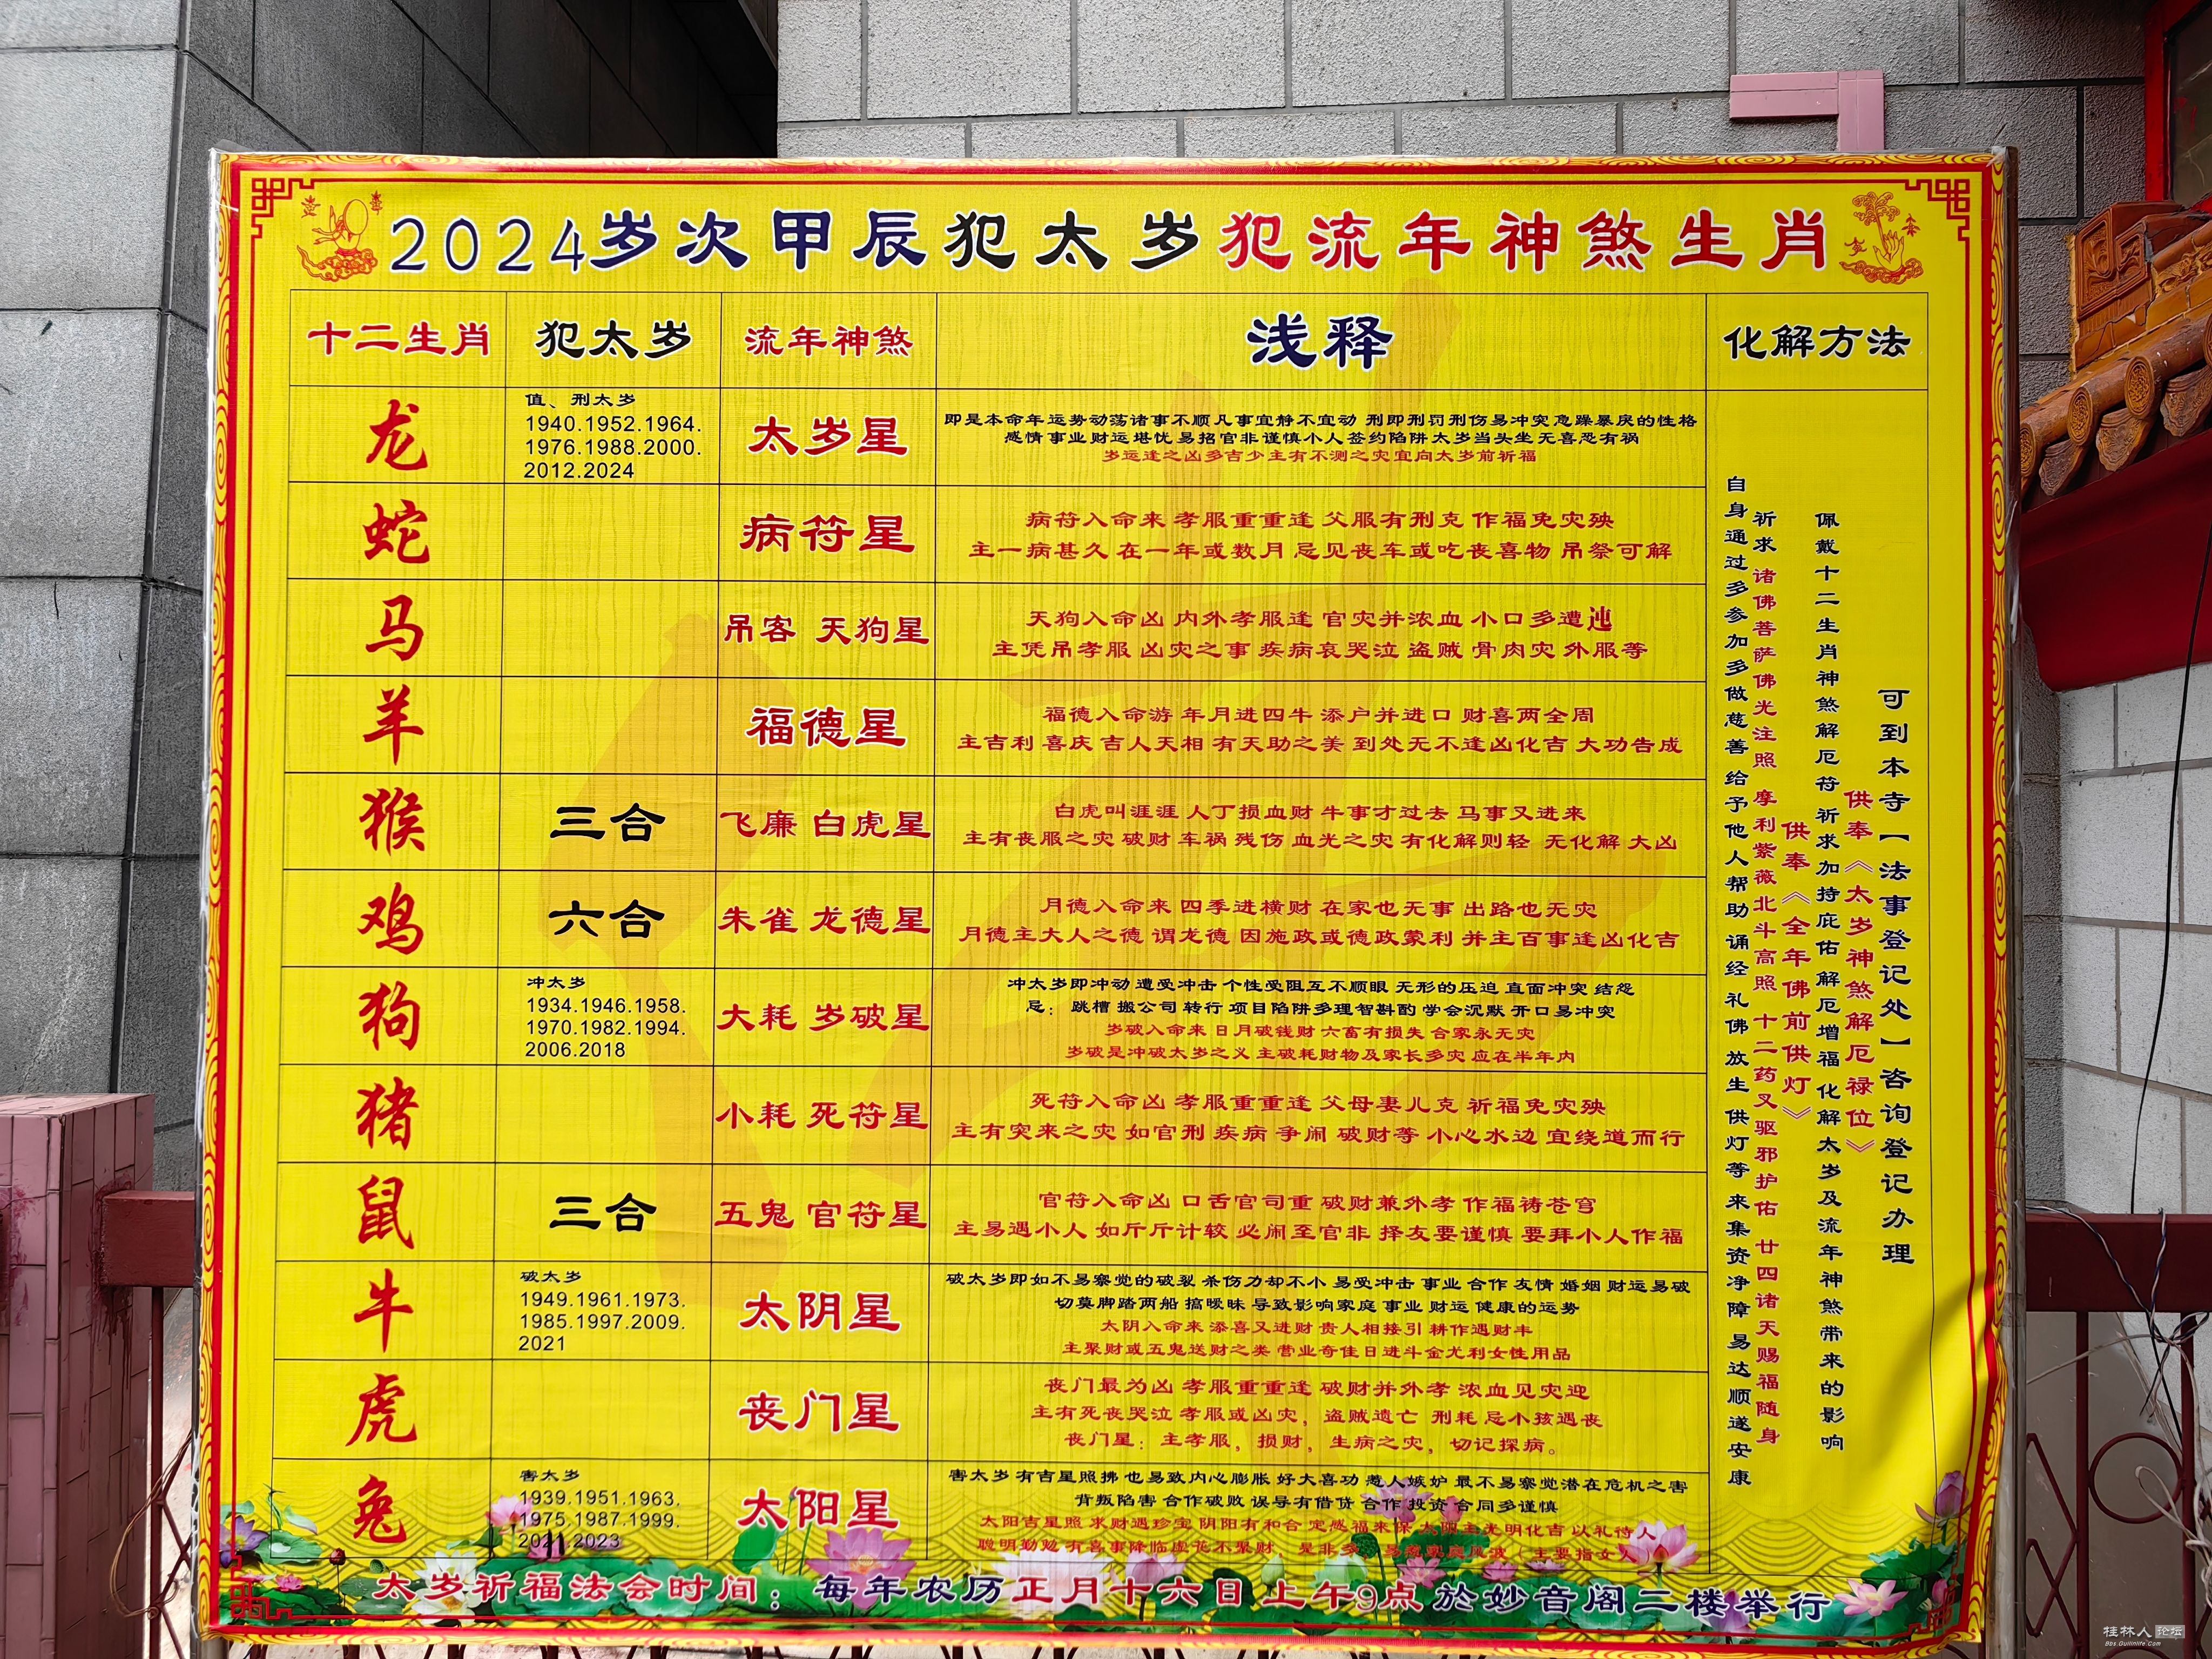 2024岁次甲辰犯太岁犯流年神煞生肖
十二生肖 犯太岁 流年神煞 浅释 化解方法
龙
值、刑太岁
1940.1952.1964.
1976.1988.2000.
2012.2024
太岁星
即是本命年运势动荡诸事不顺凡事宜静不宜动 刑即刑罚刑伤易冲突急躁暴戾的性格
感情事业财运堪忧易招官非谨慎小人签约陷阱太岁当头坐无喜恐有祸
岁运逢之凶多吉少主有不测之灾宜向太岁前祈福
蛇
病符星
病符入命来 孝服重重逢 父服有刑克 作福免灾殃
主一病甚久 在一年或数月 忌见丧车或吃丧喜物 吊祭可解
马
吊客 天狗星
天狗入命凶 内外孝服逢 官灾并浓血 小口多遭迍
主凭吊孝服 凶灾之事 疾病哀哭泣 盗贼 骨肉灾 外服等
羊
福德星
福德入命游 年月进四牛 添户并进口 财喜两全周
主吉利 喜庆 吉人天相 有天助之美 到处无不逢凶化吉 大功告成
猴
三合
飞廉 白虎星
白虎叫涯涯 人丁损血财 牛事才过去 马事又进来
主有丧服之灾 破财 车祸 残伤 血光之灾 有化解则轻 无化解 大凶
鸡
六合
朱雀 龙德星
月德入命来 四季进横财 在家也无事 出路也无灾
月德主大人之德 谓龙德 因施政或德政蒙利 并主百事逢凶化吉
狗
冲太岁
1934.1946.1958.
1970.1982.1994.
2006.2018
大耗 岁破星
冲太岁即冲动 遭受冲击 个性受阻互不顺眼 无形的压迫 直面冲突 结怨
忌： 跳槽 搬公司 转行 项目陷阱多理智斟酌 学会沉默 开口易冲突
岁破入命来 日月破钱财 六畜有损失 合家永无灾
岁破是冲破太岁之义 主破耗财物及家长多灾 应在半年内
猪
小耗 死符星
死符入命凶 孝服重重逢 父母妻儿克 祈福免灾殃
主有突来之灾 如官刑 疾病 争闹 破财等 小心水边 宜绕道而行
鼠
三合
五鬼 官符星
官符入命凶 口舌官司重 破财兼外孝 作福祷苍穹
主易遇小人 如斤斤计较 必闹至官非 择友要谨慎 要拜小人作福
牛
破太岁
1949.1961.1973.
1985.1997.2009.
2021
太阴星
破太岁即如不易察觉的破裂 杀伤力却不小 易受冲击 事业 合作 友情 婚姻 财运易破
切莫脚踏两船 搞暧昧 导致影响家庭 事业 财运 健康的运势
太阴入命来 添喜又进财 贵人相接引 耕作遇财丰
主聚财或五鬼送财之类 营业奇佳日进斗金尤利女性用品
虎
丧门星
丧门最为凶 孝服重重逢 破财并外孝 浓血见灾迎
主有死丧哭泣 孝服或凶灾，盗贼遗亡 刑耗 忌小孩遇丧
丧门星：主孝服，损财，生病之灾，切记探病。
兔
害太岁
1939.1951.1963.
1975.1987.1999.
2023
太阳星
害太岁 有吉星照拂 也易致内心膨胀 好大喜功 惹人嫉妒 最不易察觉潜在危机之害
背叛陷害 合作破败 误导有借贷 合作 投资 合同多谨慎
太阳吉星照 求财遇珍宝 阴阳有和合 定感福来保 太阳主光明化吉 以礼待人
聪明勤勉 有喜事降临虚花不聚财 是非多 （主要指女人
可到本寺【法事登记处】咨询登记办理
供奉《太岁神煞解厄禄位》
佩戴十二生肖神煞解厄符 祈求加持庇佑 解厄增福 化解太岁及流年神煞带来的影响
供奉《全年佛前供灯》
祈求 诸佛菩萨佛光注照 摩利紫薇北斗高照 十二药叉驱邪护佑 廿四诸天赐福随身
自身通过多参加多做慈善 给予他人帮助 诵经 礼佛 放生 供灯等 来集资净障 易达顺遂安康
太岁祈福法会时间：每年农历正月十六日上午9点於妙音阁二楼举行
桂林人 论坛
Bbs.Guilinlife.Com